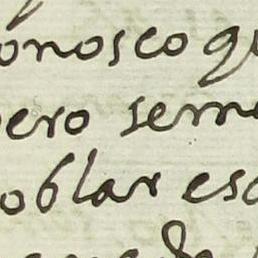 onosco qu
pero seme
oblar esc